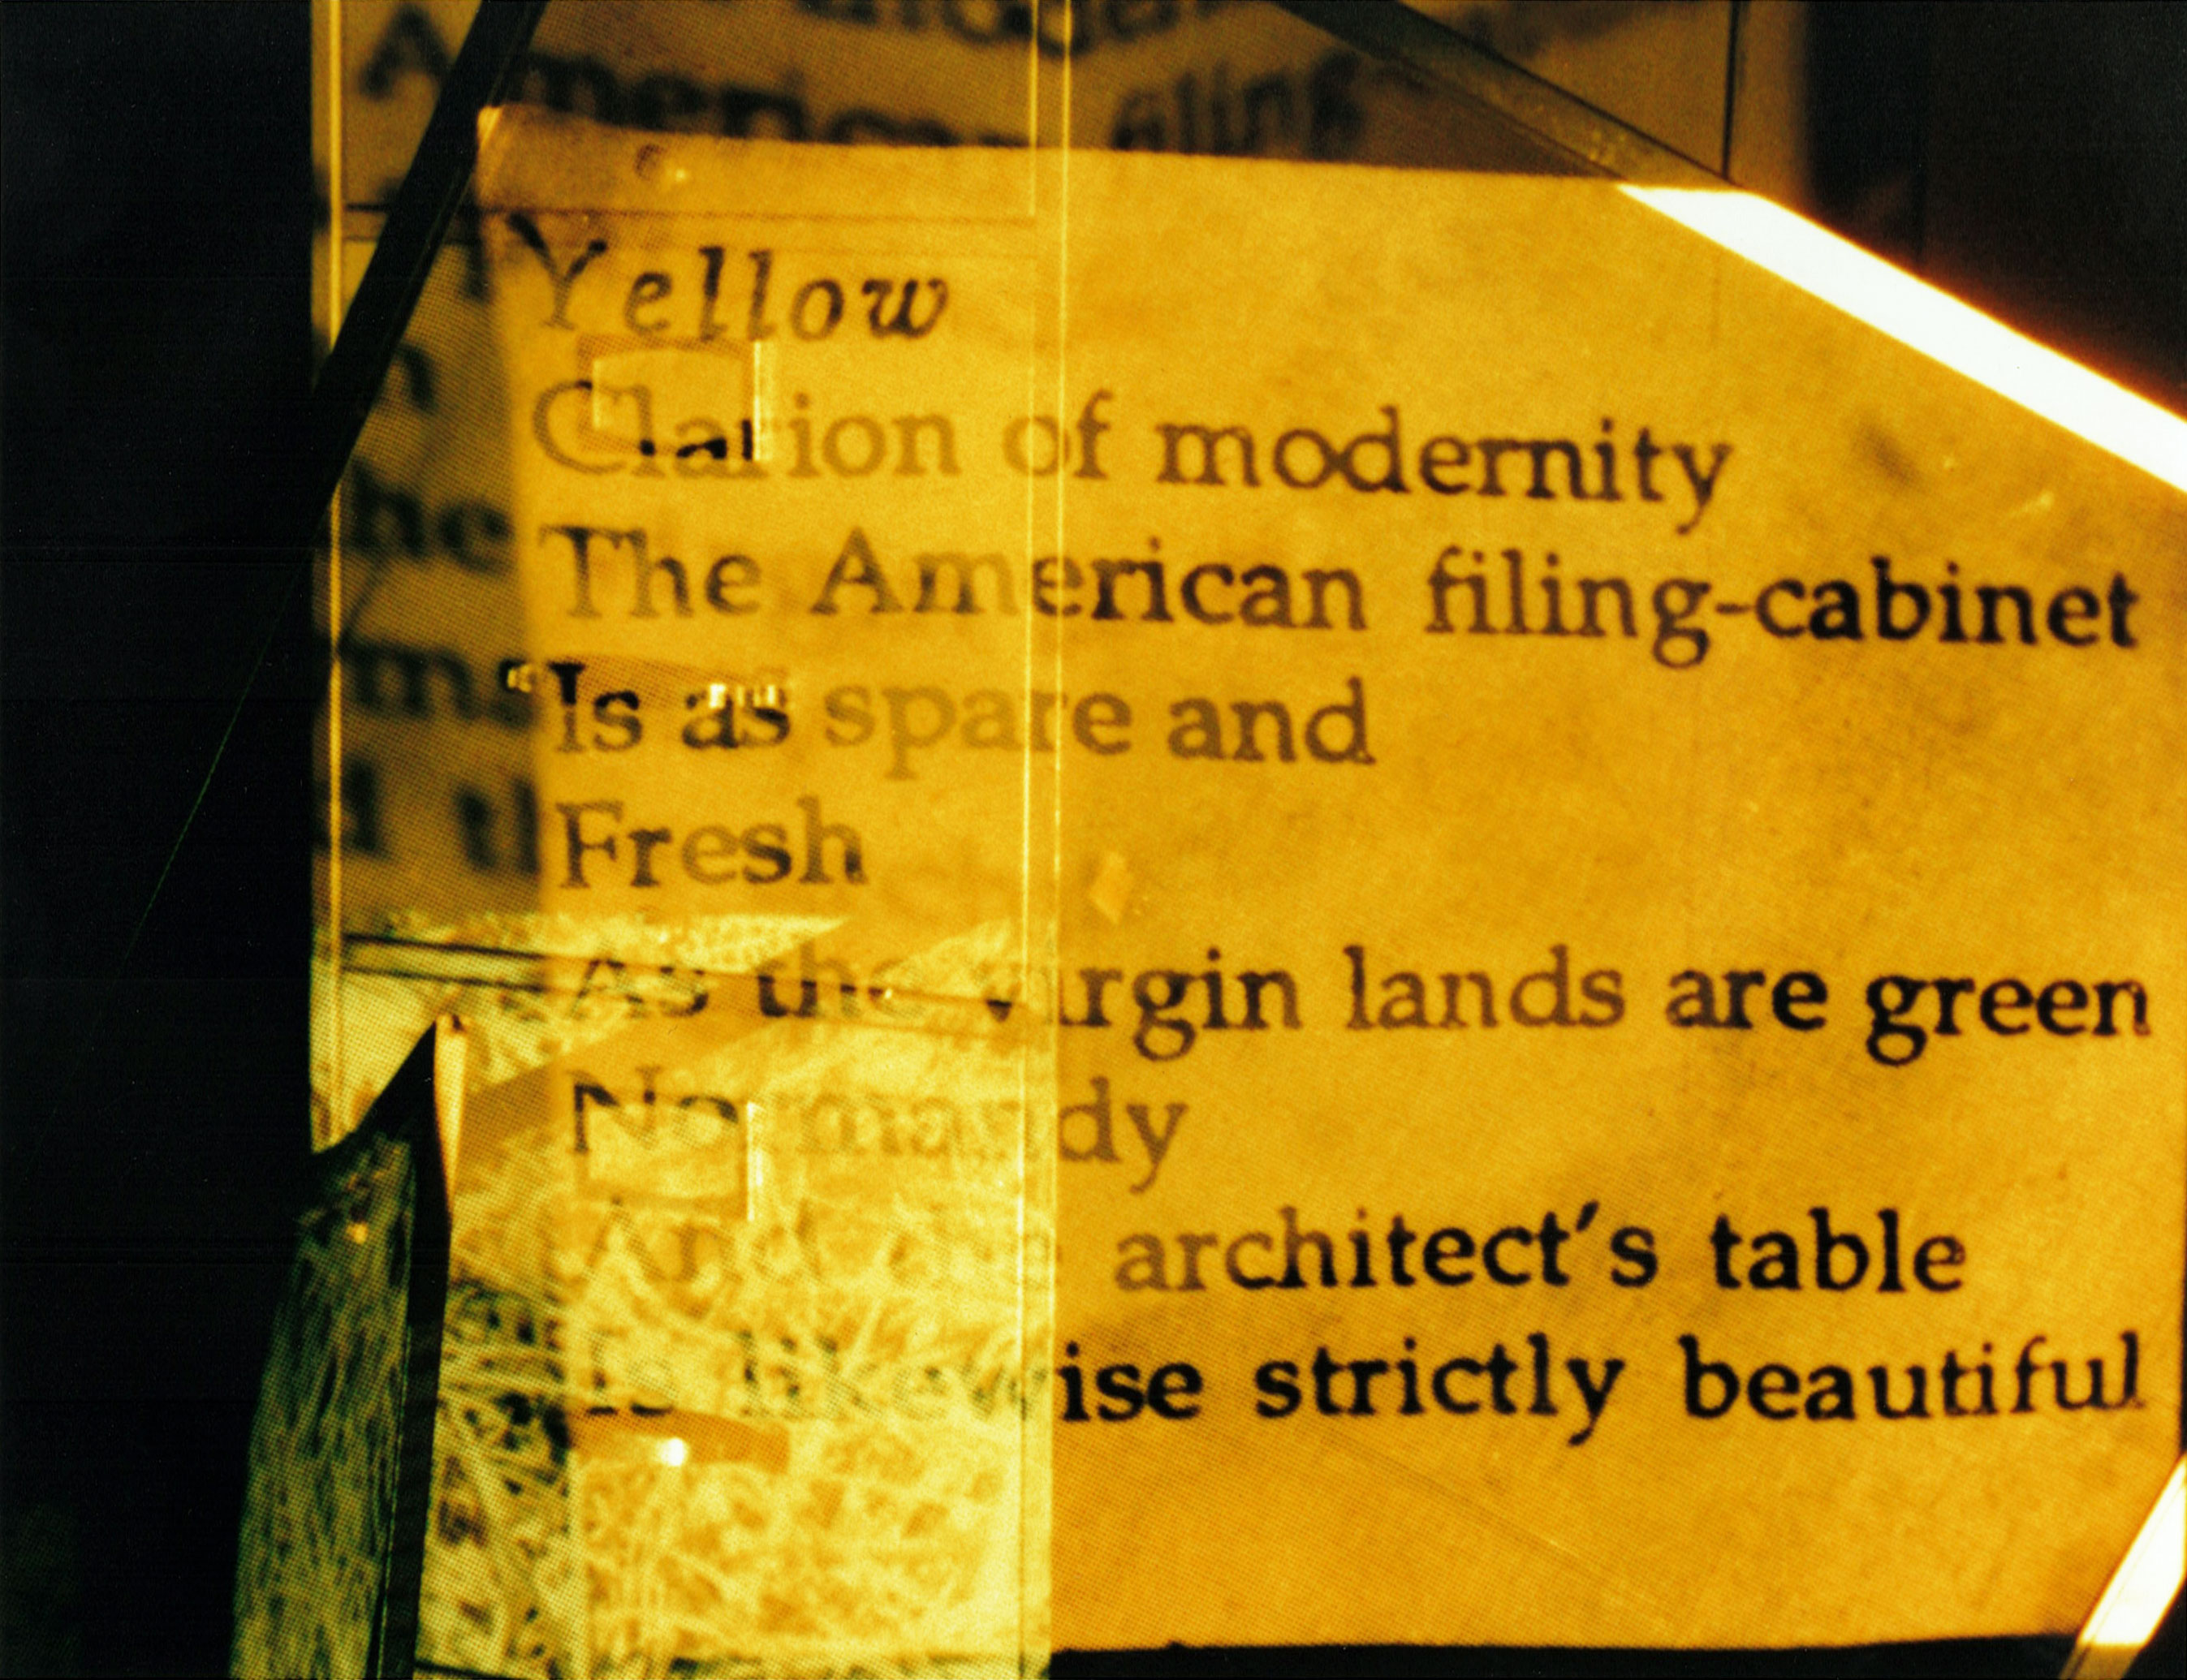 American filing
Yellow
Clarion of modernity
The American filing-cabinet
Is as spare and
Fresh
As the virgin lands are green
Normandy
And the architect's table
Is likewise strictly beautiful